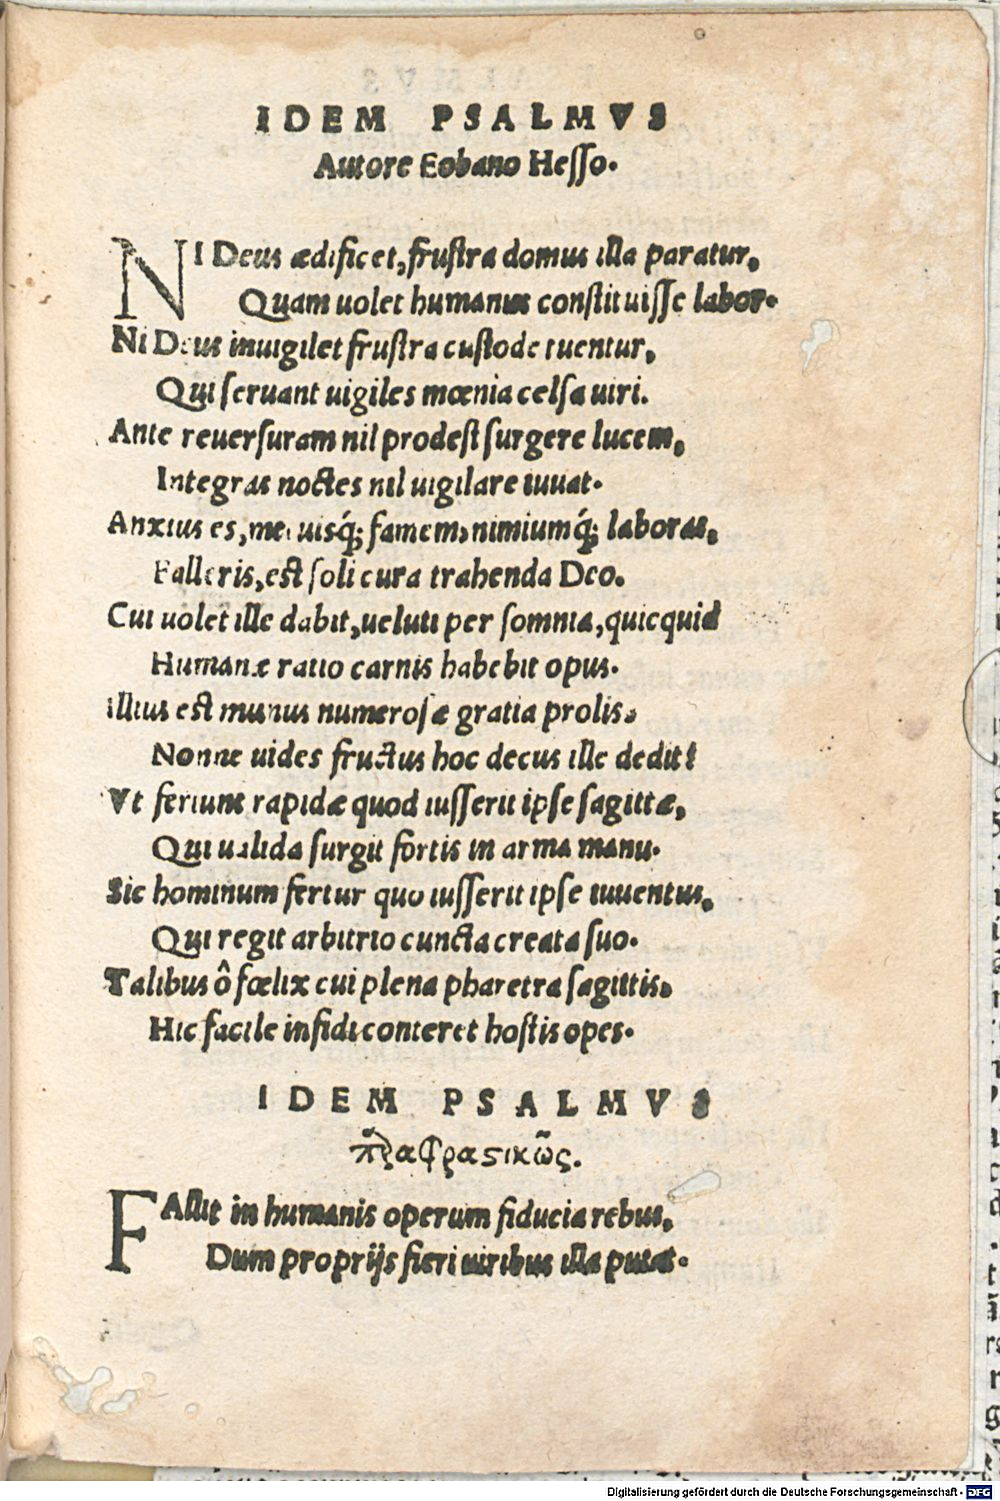 IDEM PSALMVS
Autore Eobano Hesso.
NI Deus ædificet, frustra domus illa paratur,
Quam uolet humanus constituisse labor.
Ni Deus inuigilet frustra custode tuentur,
Qui seruant uigiles mœnia celsa uiri.
Ante reuersuram nil prodest surgere lucem,
Integras noctes nil uigilare iuuat.
Anxius es, metuisq́; famem, nimiumq́; laboras,
Falleris, est soli cura trahenda Deo.
Cui uolet ille dabit, ueluti per somnia, quicquid
Humanæ ratio carnis habebit opus.
Illius est munus numerosæ gratia prolis.
Nonne uides fructus hoc decus ille dedit?
Vt feriunt rapidæ quod iusserit ipse sagittæ,
Qui ualida surgit fortis in arma manu.
Sic hominum fertur quo iusserit ipse iuuentus,
Qui regit arbitrio cuncta creata suo.
Talibus ô fœlix cui plena pharetra sagittis.
Hic facile infidi conteret hostis opes.
IDEM PSALMVS
FAllit in humanis operum fiducia rebus,
Dum proprijs fieri uiribus illa putat.
Digitalisierung gefördert durch die Deutsche Forschungsgemeinschaft - DFG